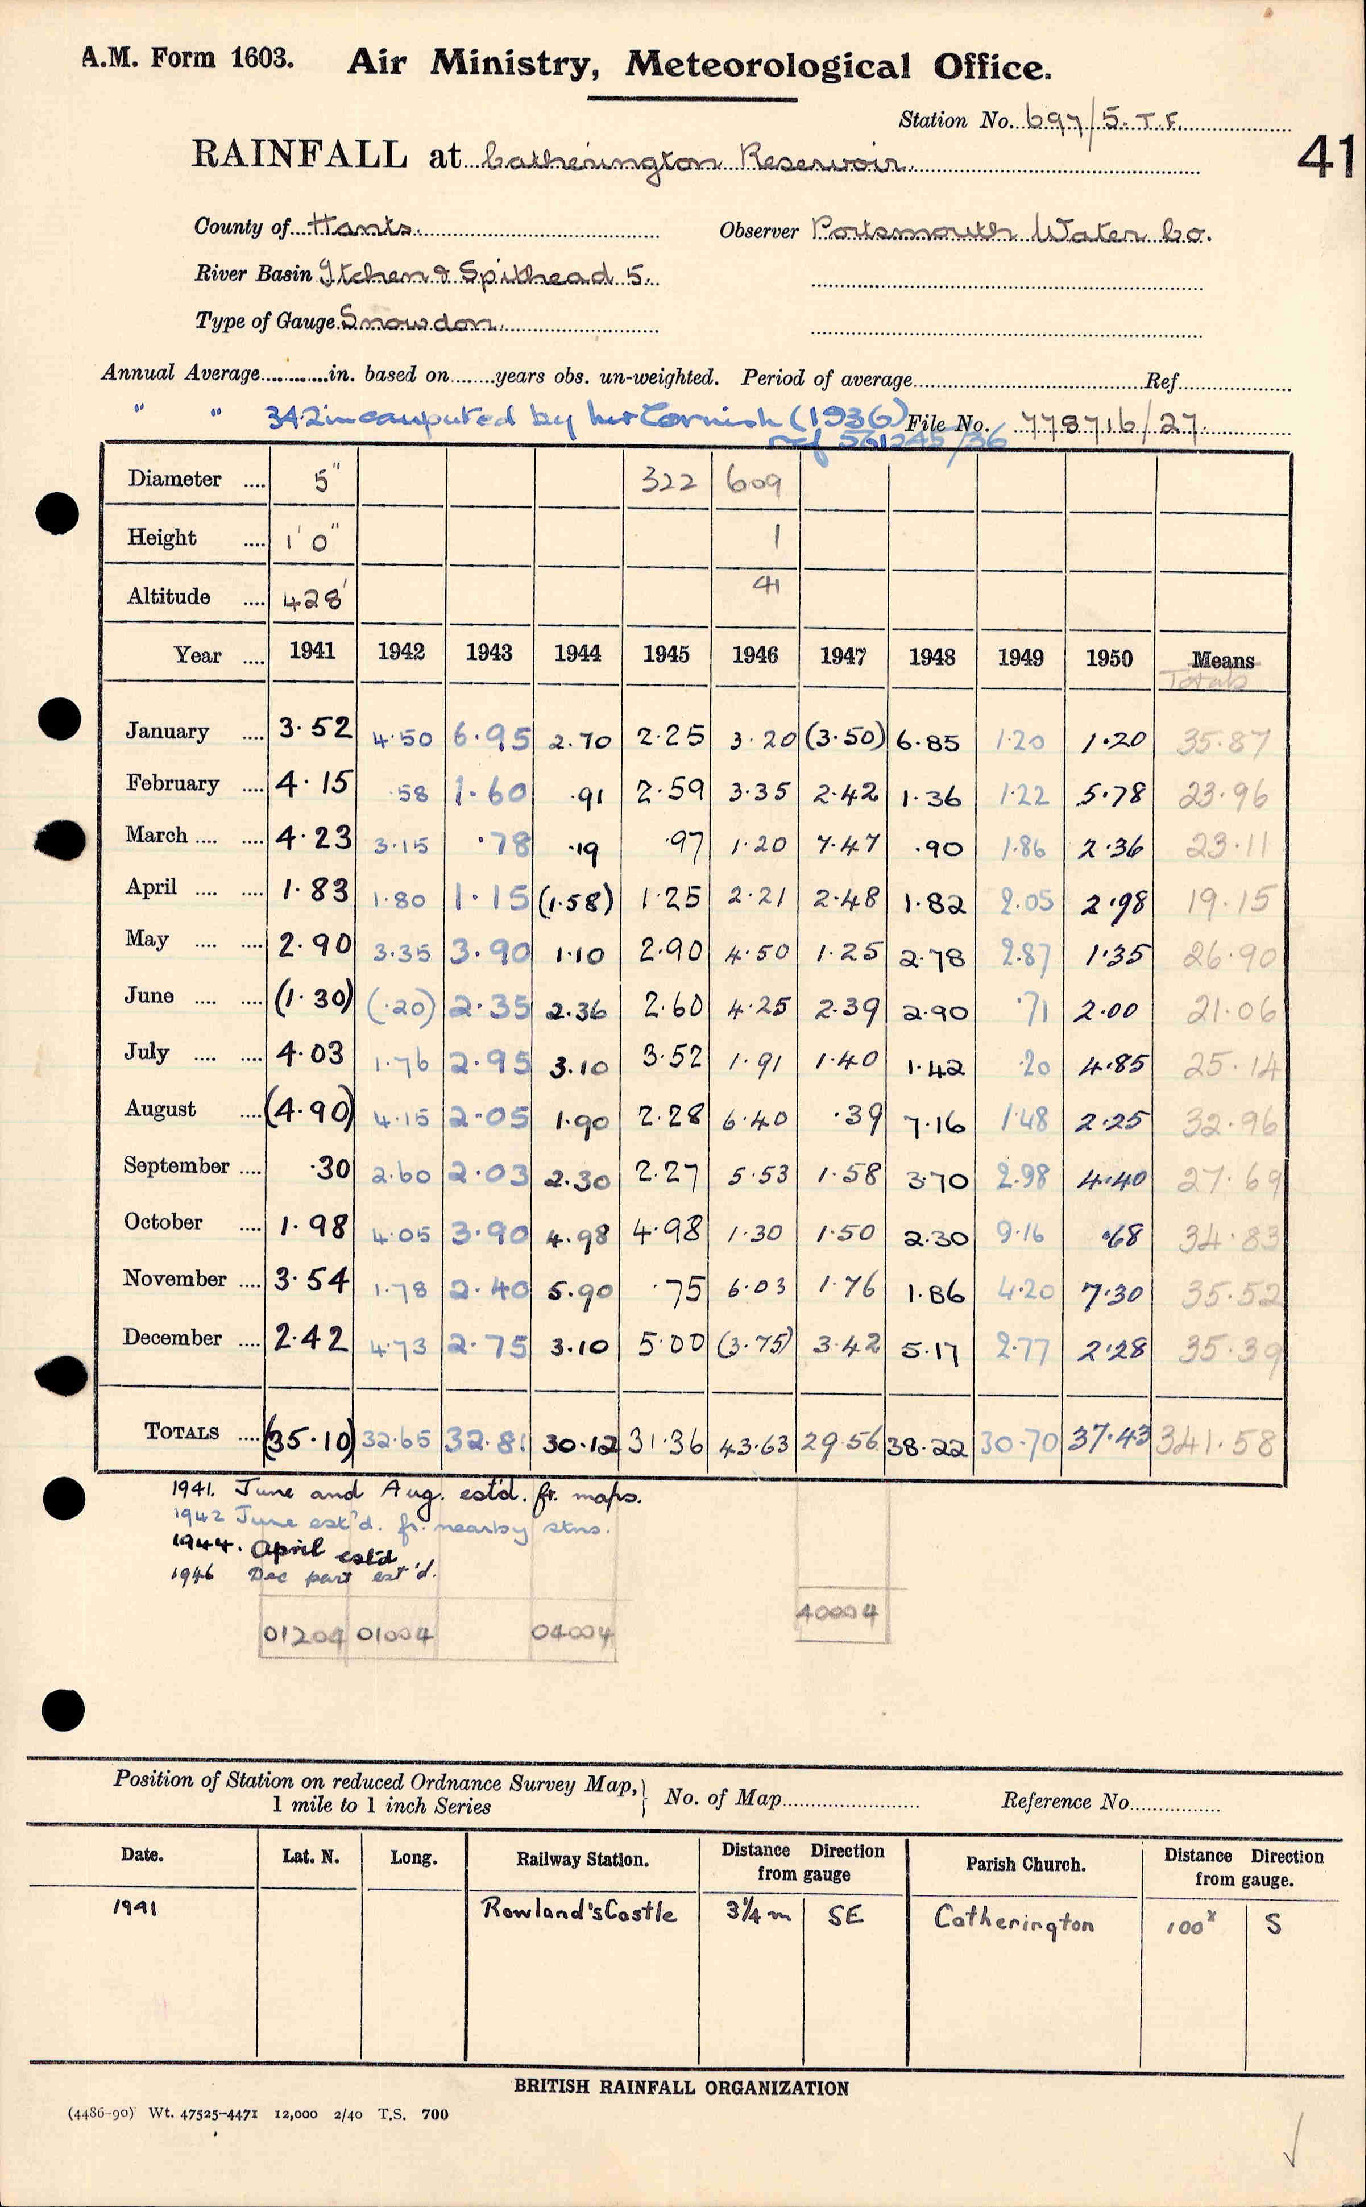 A.M. Form 1603. Air Ministry, Meteorological Office.
Station No. 697/5. T.F.
RAINFALL at Catherington Reservoir. 41
County of Hants. Observer Portsmouth Water Co.
River Basin Itchen & Spithead 5.
Type of Gauge Snowdon.
Annual Average............in. based on........years obs. un-weighted. Period of average........Ref........
" " 34.2 in computed by Mr Cornish (1936) File No. 778716/27
ref 561245/36
Diameter .... 5" 322 609
Height .... 1' 0" 1
Altitude .... 428' 41
Year .... 1941 1942 1943 1944 1945 1946 1947 1948 1949 1950 Means
Totals
January .... 3.52 4.50 6.95 2.70 2.25 3.20 (3.50) 6.85 1.20 1.20 35.87
February .... 4.15 .58 1.60 .91 2.59 3.35 2.42 1.36 1.22 5.78 23.96
March .... .... 4.23 3.15 .78 .19 .97 1.20 7.47 .90 1.86 2.36 23.11
April .... .... 1.83 1.80 1.15 (1.58) 1.25 2.21 2.48 1.82 2.05 2.98 19.15
May .... .... 2.90 3.35 3.90 1.10 2.90 4.50 1.25 2.78 2.87 1.35 26.90
June .... .... (1.30) (.20) 2.35 2.36 2.60 4.25 2.39 2.90 .71 2.00 21.06
July .... .... 4.03 1.76 2.95 3.10 3.52 1.91 1.40 1.42 .20 4.85 25.14
August .... (4.90) 4.15 2.05 1.90 2.28 6.40 .39 7.16 1.48 2.25 32.96
September .... .30 2.60 2.03 2.30 2.27 5.53 1.58 3.70 2.98 4.40 27.69
October .... 1.98 4.05 3.90 4.98 4.98 1.30 1.50 2.30 9.16 .68 34.83
November .... 3.54 1.78 2.40 5.90 .75 6.03 1.76 1.86 4.20 7.30 35.52
December .... 2.42 4.73 2.75 3.10 5.00 (3.75) 3.42 5.17 2.77 2.28 35.39
TOTALS .... (35.10) 32.65 32.81 30.12 31.36 43.63 29.56 38.22 30.70 37.43 341.58
1941. June and Aug. est'd. fr. maps.
1942 June est'd. fr. nearby stns.
1944. April est'd
1946 Dec part est'd.
40004
01204 01004 04004
Position of Station on reduced Ordnance Survey Map, 1 mile to 1 inch Series } No. of Map........ Reference No........
Date. Lat. N. Long. Railway Station. Distance Direction from gauge Parish Church. Distance Direction from gauge.
1941 Rowland's Castle 3¼ m SE Catherington 100ˣ S
BRITISH RAINFALL ORGANIZATION
(4486-90) Wt. 47525-4471 12,000 2/40 T.S. 700